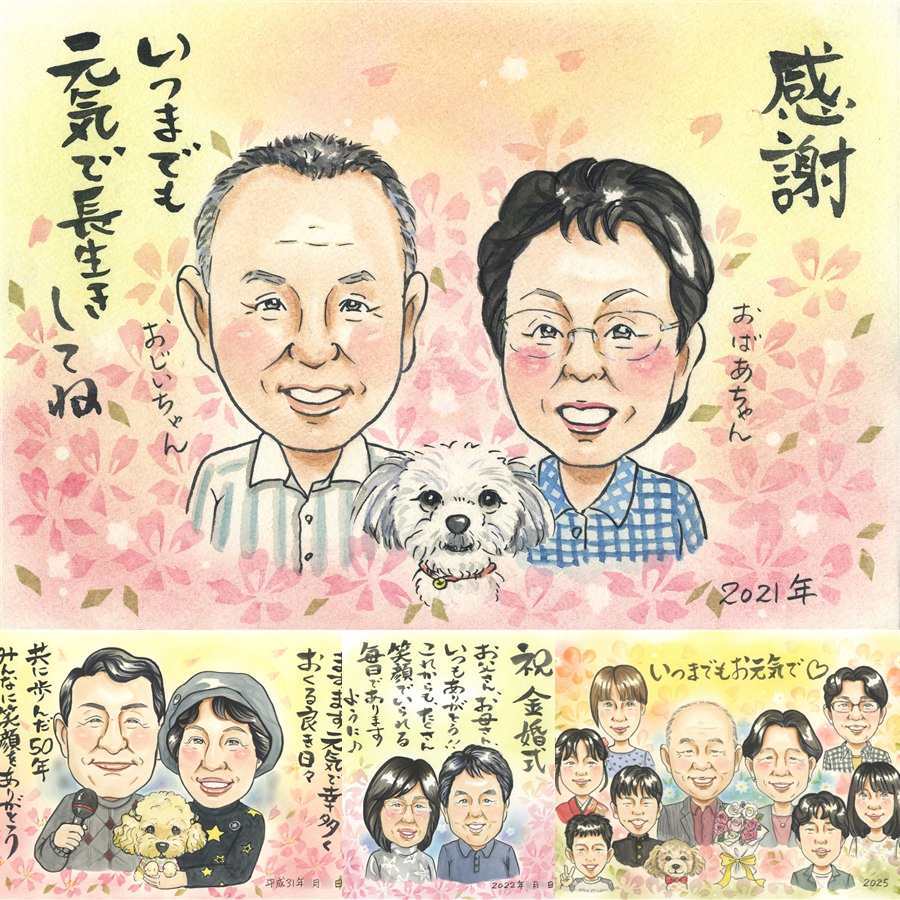 感謝
おばあちゃん
いつまでも
元気で長生きしてね
おじいちゃん
2021年
ますます元気で幸多く
おくる良き日々
共に歩んだ50年
みんなに笑顔をありがとう
平成31年 月 日
祝 金婚式
お父さん、お母さん、
いつもありがとう!!
これからもたくさん
笑顔でいられる
毎日であります
ように♪
2022年 月 日
いつまでもお元気で♡
2025